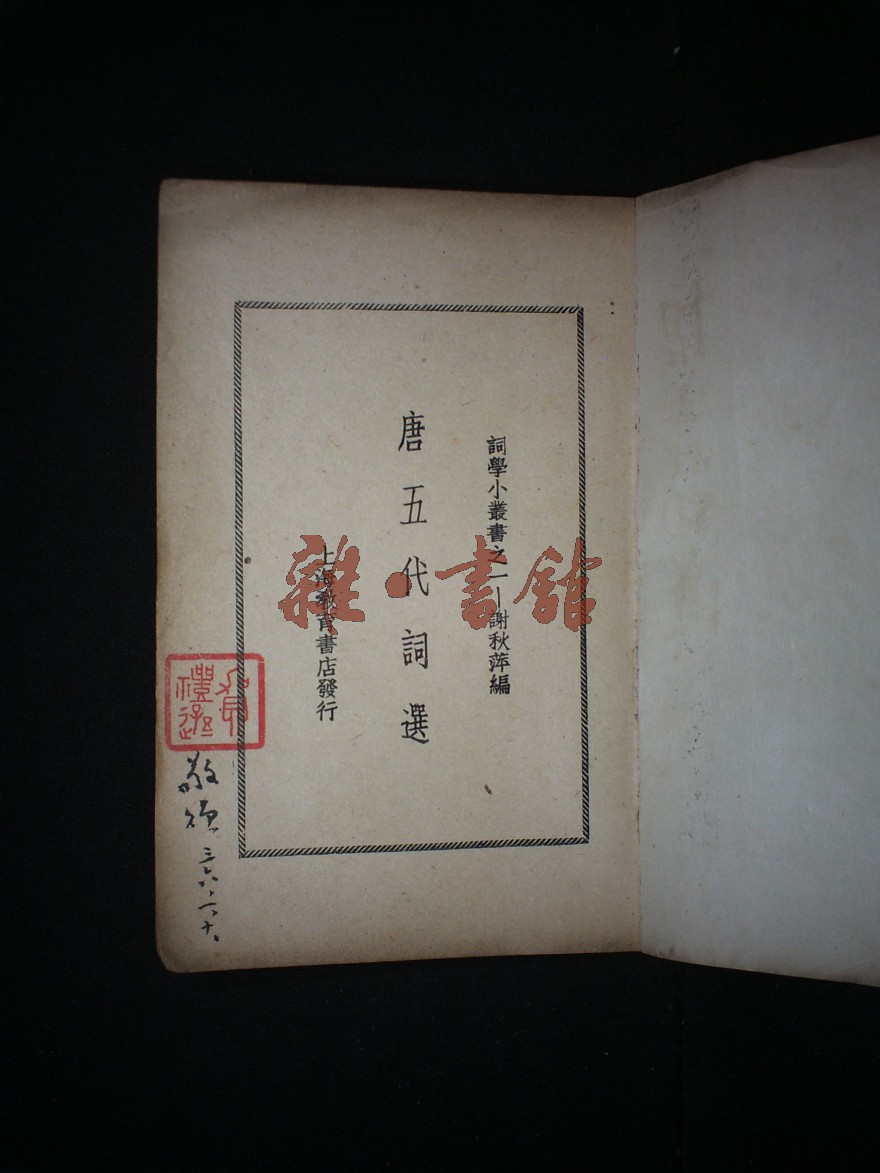 詞學小叢書之一—謝秋萍編
唐五代詞選
上海教育書店發行
三六、一、十、
雜·書館